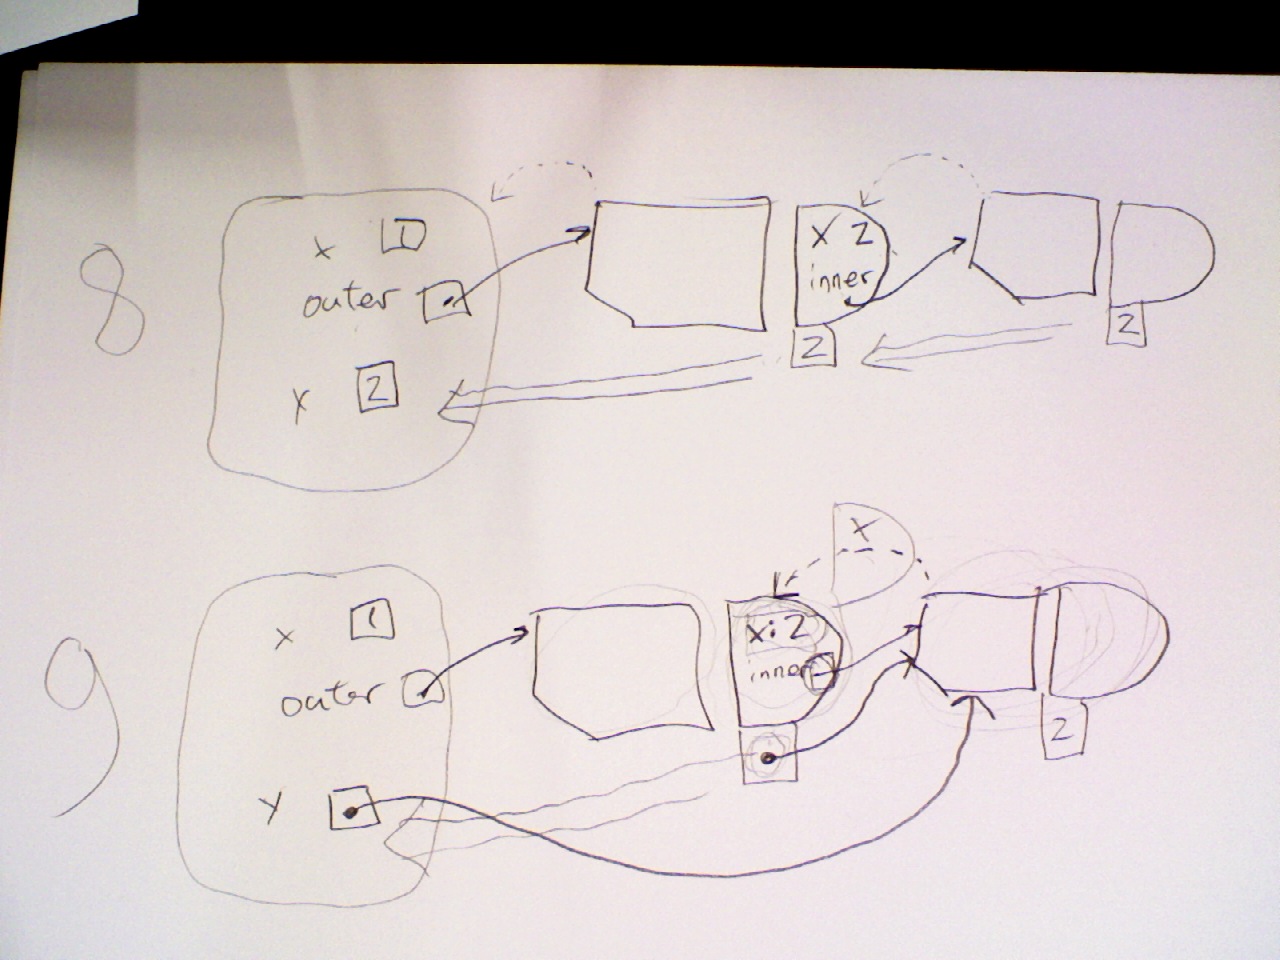 8
x 1
outer
y 2
x 2
inner
2
2
9
x 1
outer
y
x
x: 2
inner
2